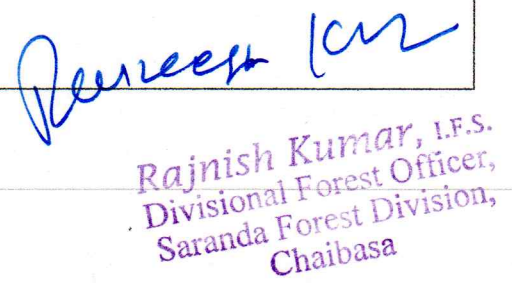 Rajnish Kumar, I.F.S.
Divisional Forest Officer,
Saranda Forest Division,
Chaibasa